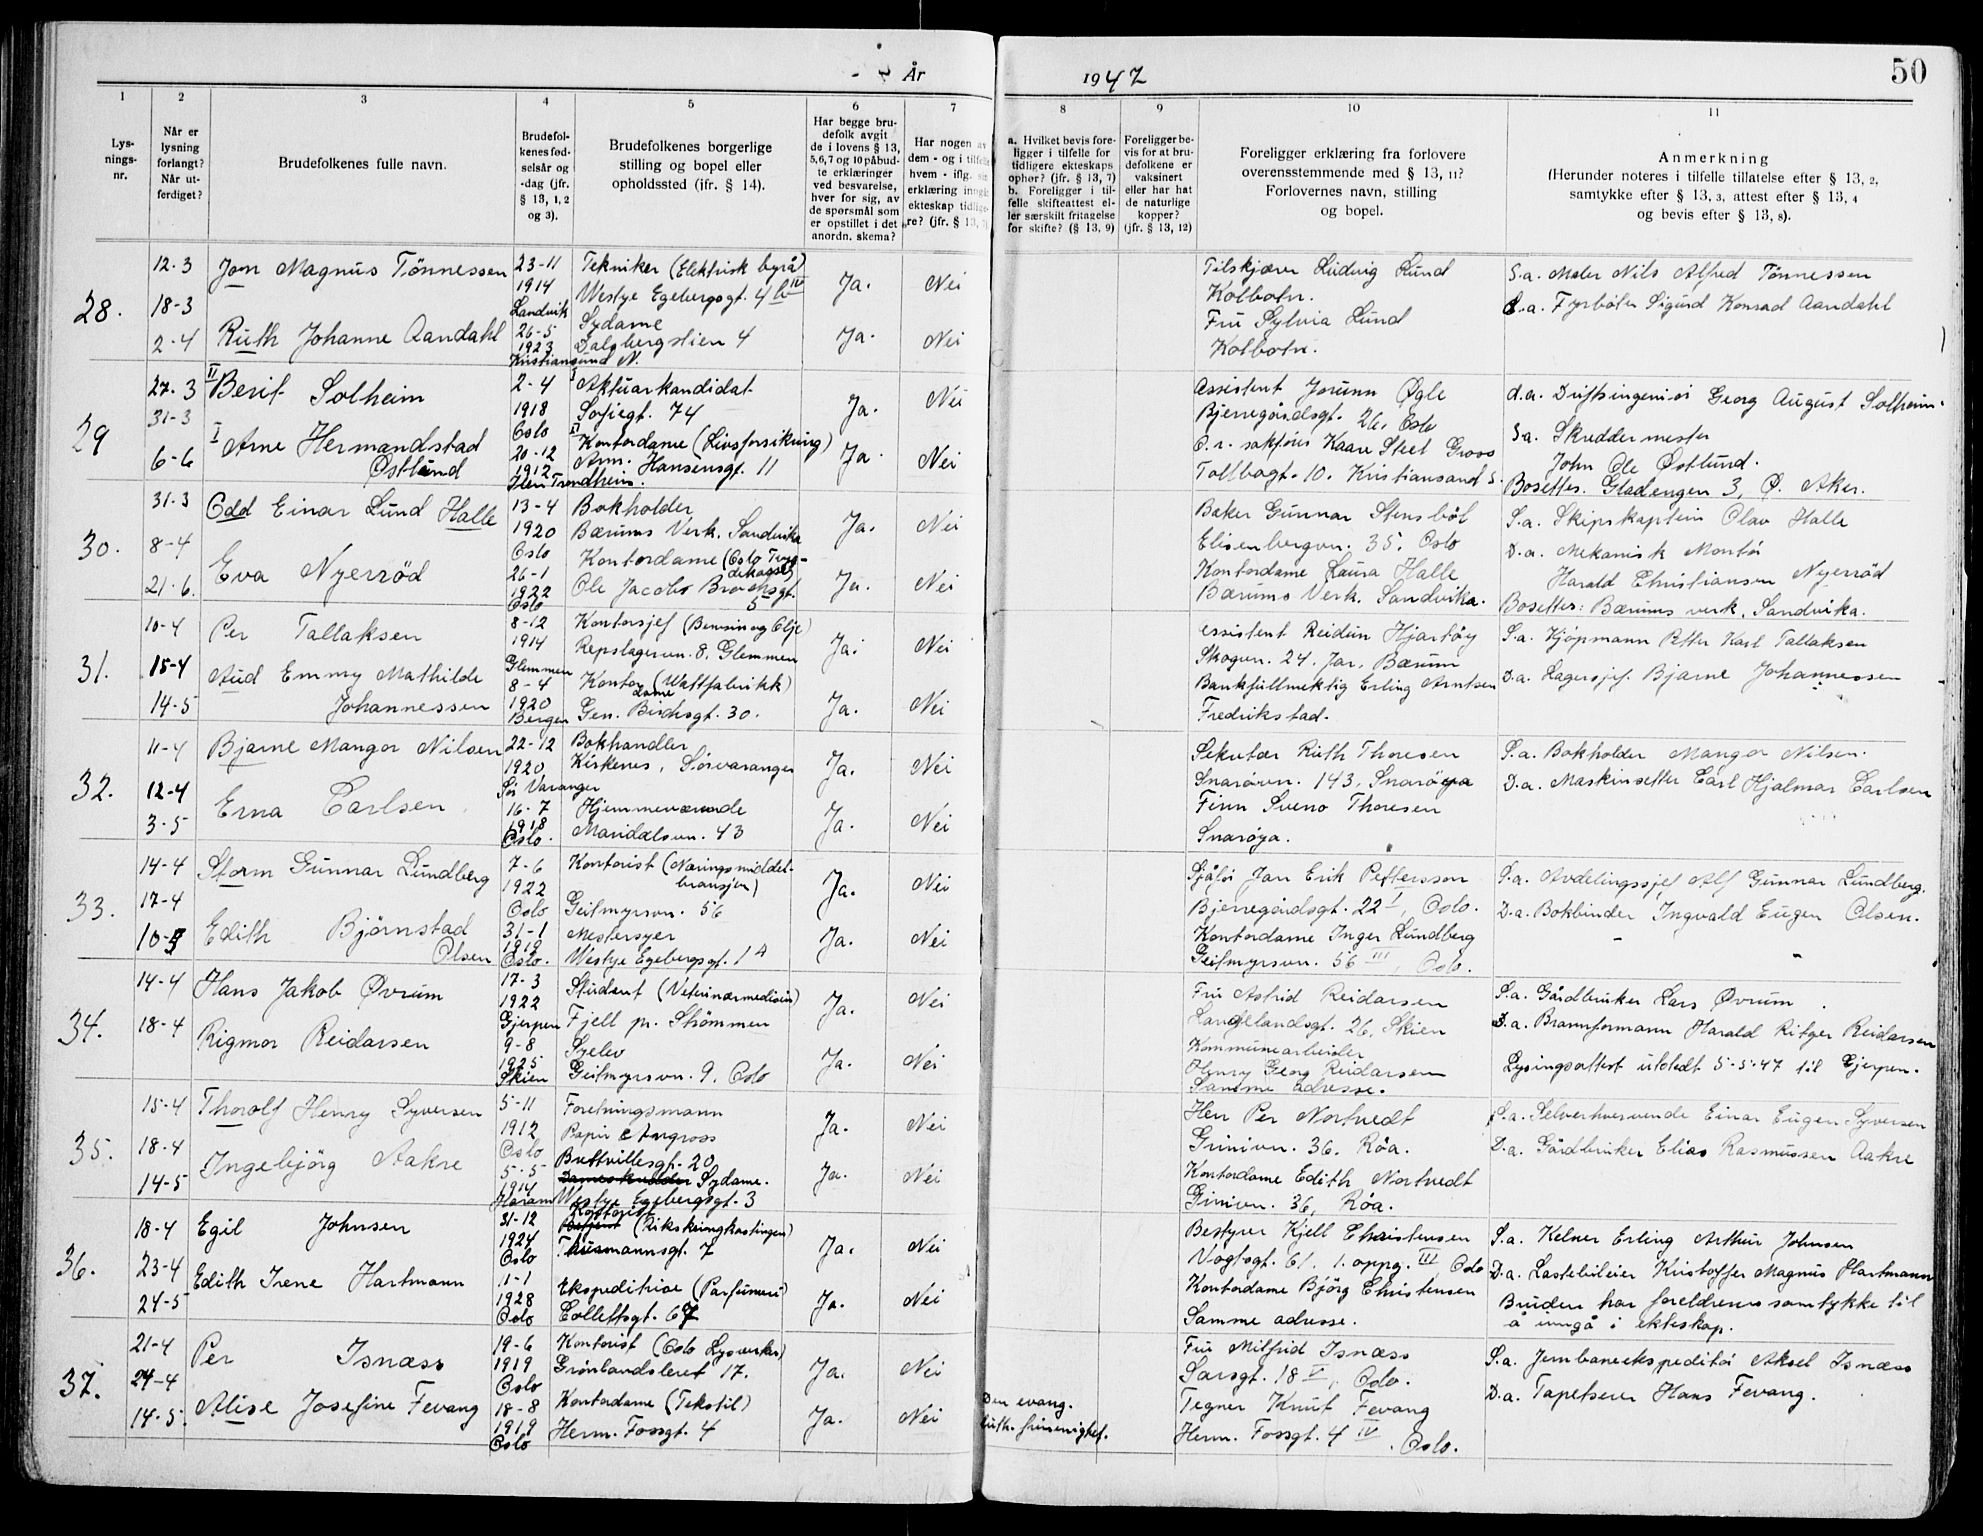 År 1947
50
1 2 3 4 5 6 7 8 9 10 11
Lys-
nings-
nr.
Når er
lysning
forlangt?
Når ut-
ferdiget?
Brudefolkenes fulle navn.
Brudefol-
kenes fød-
selsår og
-dag (jfr.
§ 13, 1, 2
og 3).
Brudefolkenes borgerlige
stilling og bopel eller
opholdssted (jfr. § 14).
Har begge bru-
defolk avgit
de i lovens § 13,
5, 6, 7 og 10 påbud-
te erklæringer
ved besvarelse,
hver for sig, av
de spørsmål som
er opstillet i det
anordn. skema?
Har nogen av
dem - og i tilfelle
hvem - iflg. sin
erklæring inngått
ekteskap tidlige-
re? (jfr. § 13, 7)
a. Hvilket bevis fore-
ligger i tilfelle for
tidligere ekteskaps
ophør? (jfr. § 13, 7)
b. Foreligger i til-
felle skifteattest el-
ler særskilt fritagelse
for skifte? (§ 13, 9)
Foreligger be-
vis for at bru-
defolkene er
vaksinert
eller har hat
de naturlige
kopper?
(jfr. § 13, 12)
Foreligger erklæring fra forlovere
overensstemmende med § 13, 11?
Forlovernes navn, stilling
og bopel.
Anmerkning
(Herunder noteres i tilfelle tillatelse efter § 13, 2,
samtykke efter § 13, 3, attest efter § 13, 4
og bevis efter § 13, 8).
28.
12.3
18-3
2-4
Jon Magnus Tönnessen
Ruth Johanne Aandahl
23-11
1914
Landvik
26-5
1923
Kristiansund N.
Tekniker (Elektrisk byrå)
Westye Egebergsgt. 4 b IV
Sydame
Dalsbergstien 4
Ja. Nei
Ja. Nei
Tilskjærer Ludvig Lund
Kolbotn.
Fru Sylvia Lund
Kolbotn.
S.a. Maler Nils Alfred Tönnessen
D.a. Fyrböter Sigurd Konrad Aandahl
29
27.3
31-3
6-6
II Berit Solheim
I Arne Hermandstad
Östlund
2-4
1918
Oslo
20-12
1912
Trondheim.
I Aktuarkandidat
Sofiegt. 74
II Kontordame (Livsforsikring)
Arm. Hansensgt. 11
Ja. Nei
Ja. Nei
Assistent Jorunn Øgle
Bjerregårdsgt. 26, Oslo
O.r. sakförer Kaare Steel Groos
Tollbogt. 10. Kristiansand S.
d.a. Driftsingeniör Georg August Solheim.
S.a. Skreddermester
John Ole Østlund.
Bosettes. Gladengen 3, Ø. Aker.
30.
31.3
8-4
21.6.
Odd Einar Lund Halle
Eva Nyerröd
13-4
1920
Oslo
26-1
1922
Oslo
Bokholder
Bærums Verk. Sandvika
Kontordame (Oslo Tryg-
dekasse)
Ole Jacobs Brochsgt.
5
Ja. Nei
Ja. Nei
Baker Gunnar Stensböl
Elisenbergvn. 35. Oslo
Kontordame Laura Halle
Bærums Verk. Sandvika.
S.a. Skipskaptein Olav Halle
D.a. Mekanisk Montör
Harald Christiansen Nyerröd
Bosettes: Bærums verk. Sandvika.
31.
10-4
15-4
14-5
Per Tallaksen
Aud Emmy Mathilde
Johannessen
8-12
1914
Glemmen
8-4
1920
Bergen
Kontorsjef (Bensin og Olje)
Repslagervn. 8. Glemmen
Kontordame (Wattfabrikk)
Gen. Birchsgt. 30.
Ja. Nei
Ja. Nei
Assistent Reidun Hjartöy
Skogvn. 24. Jar. Bærum
Bankfullmektig Erling Arntsen
Fredrikstad.
S.a. Kjöpmann Petter Karl Tallaksen
D.a. Lagersjef. Bjarne Johannessen
32.
11-4
12-4
3-5
Bjarne Mangor Nilsen
Erna Carlsen
22-12
1920
Sör Varanger
16-7
1918
Oslo.
Bokhandler
Kirkenes, Sörvaranger
Hjemmeværende
Maridalsvn. 43
Ja. Nei
Ja. Nei
Sekretær Ruth Thoresen
Snaröyvn. 143, Snaröya
Finn Sveno Thoresen
Snaröya.
S.a. Bokholder Mangor Nilsen.
D.a. Maskinsetter Carl Hjalmar Carlsen
33.
14-4
17-4
10-5
Storm Gunnar Lundberg
Edith Björnstad
Olsen
7-6
1922
Oslo
31-1
1919
Oslo.
Kontorist (Næringsmiddel-
bransjen)
Geitmyrsvn. 56
Mestersyer
Westye Egebergsgt. 1 A
Ja. Nei
Ja. Nei
Sjåför Jan Erik Pettersson
Bjerregårdsgt. 22 I, Oslo.
Kontordame Inger Lundberg
Geitmyrsvn. 56 III, Oslo.
S.a. Avdelingssjef Alf Gunnar Lundberg.
D.a. Bokbinder Ingvald Eugen Olsen.
34.
14-4
18-4
Hans Jakob Øvrum
Rigmor Reidarsen
17-3
1922
Gjerpen
9-8
1925
Skien
Student (Veterinærmedisin)
Fjell pr. Strömmen
Syelev
Geitmyrsvn. 9. Oslo
Ja. Nei
Ja. Nei
Fru Astrid Reidarsen
Langelandsgt. 26, Skien
Kommunearbeider
Henry Georg Reidarsen
Samme adresse.
S.a. Gårdbruker Lars Øvrum.
D.a. Brannformann Harald Ritger Reidarsen
Lysingsattest utstedt 5-5-47 til Gjerpen.
35.
15-4
18-4
14-5
Thorolf Henry Syversen
Ingebjörg Aakre
5-11
1912
Oslo
5-5
1914
Haram
Forretningsmann
Papir Engross
Bredtvillesgt. 20
Sydame.
Westye Egebergsgt. 3
Ja. Nei
Ja. Nei
Herr Per Nortvedt
Grinivn. 36. Röa.
Kontordame Edith Nortvedt
Grinivn. 36, Röa.
S.a. Selverhvervende Einar Eugen Syversen
D.a. Gårdbruker Elias Rasmussen Aakre
36.
18-4
23-4
24-5
Egil Johnsen
Edith Irene Hartmann
31-12
1924
Oslo
11-1
1928
Oslo
Kontorist
Betjent (Rikskringkastingen)
Thaasmannsgt. 7
Ekspeditrise (Parfumeri)
Collettsgt. 67
Ja. Nei
Ja. Nei
Bestyrer Kjell Christensen
Vogtsgt. 61. 1. oppg. III Oslo
Kontordame Björg Christensen
Samme adresse.
S.a. Kelner Erling Arthur Johnsen
D.a. Lastebileier Kristoffer Magnus Hartmann
Bruden har foreldrenes samtykke til
å inngå i ekteskap.
37.
21-4
24-4
14-5
Per Isnæss
Alise Josefine Fevang
19-6
1919
Oslo
18-8
1919
Oslo
Kontorist (Oslo Lysverker)
Grønlandsleret 17.
Kontordame (Tekstil)
Herm. Fossgt. 4
Ja. Nei
Ja. Nei
Den evang.
luth. frimenighet.
Fru Milfrid Isnæss
Sarsgt. 18 V, Oslo.
Tegner Knut Fevang
Herm. Fossgt. 4 IV. Oslo.
S.a. Jernbaneekspeditör Aksel Isnæss
D.a. Tapetserer Hans Fevang.